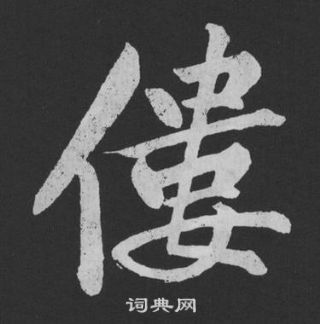 僂
词典网